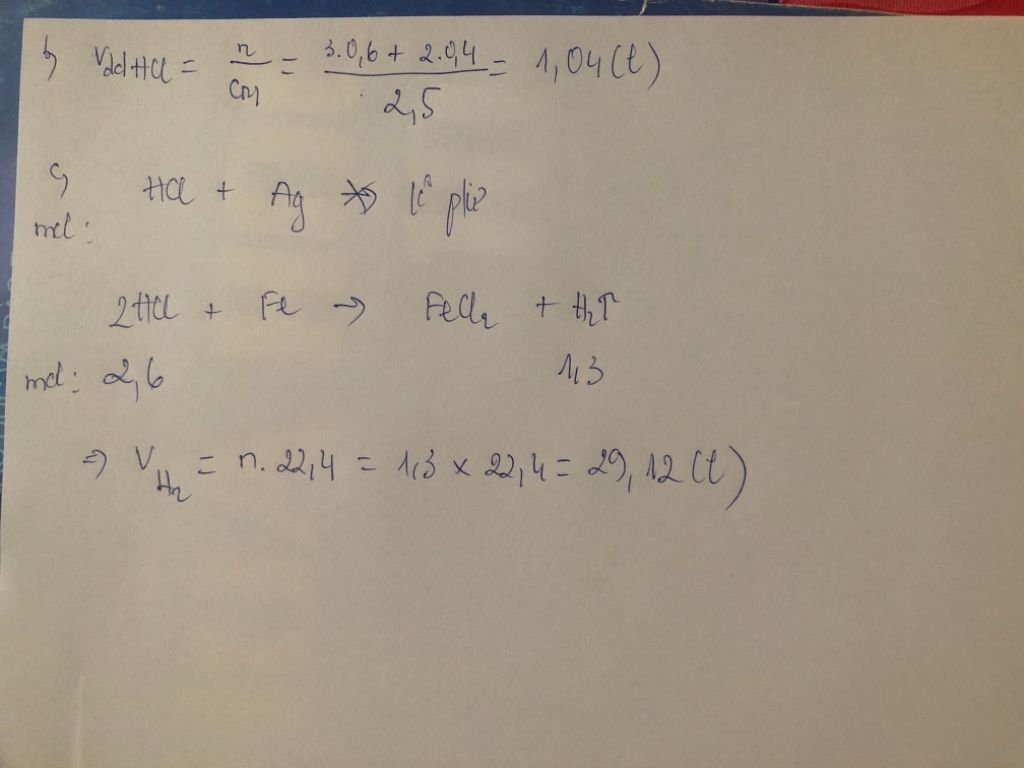 b) VddHCl = n / CM = 3.0,6 + 2.0,4 / 2,5 = 1,04 (l)
c) HCl + Ag ↛
mol:
2HCl + Fe → FeCl2 + H2↑
mol: 2,6 1,3
⇒ VH2 = n. 22,4 = 1,3 x 22,4 = 29,12 (l)